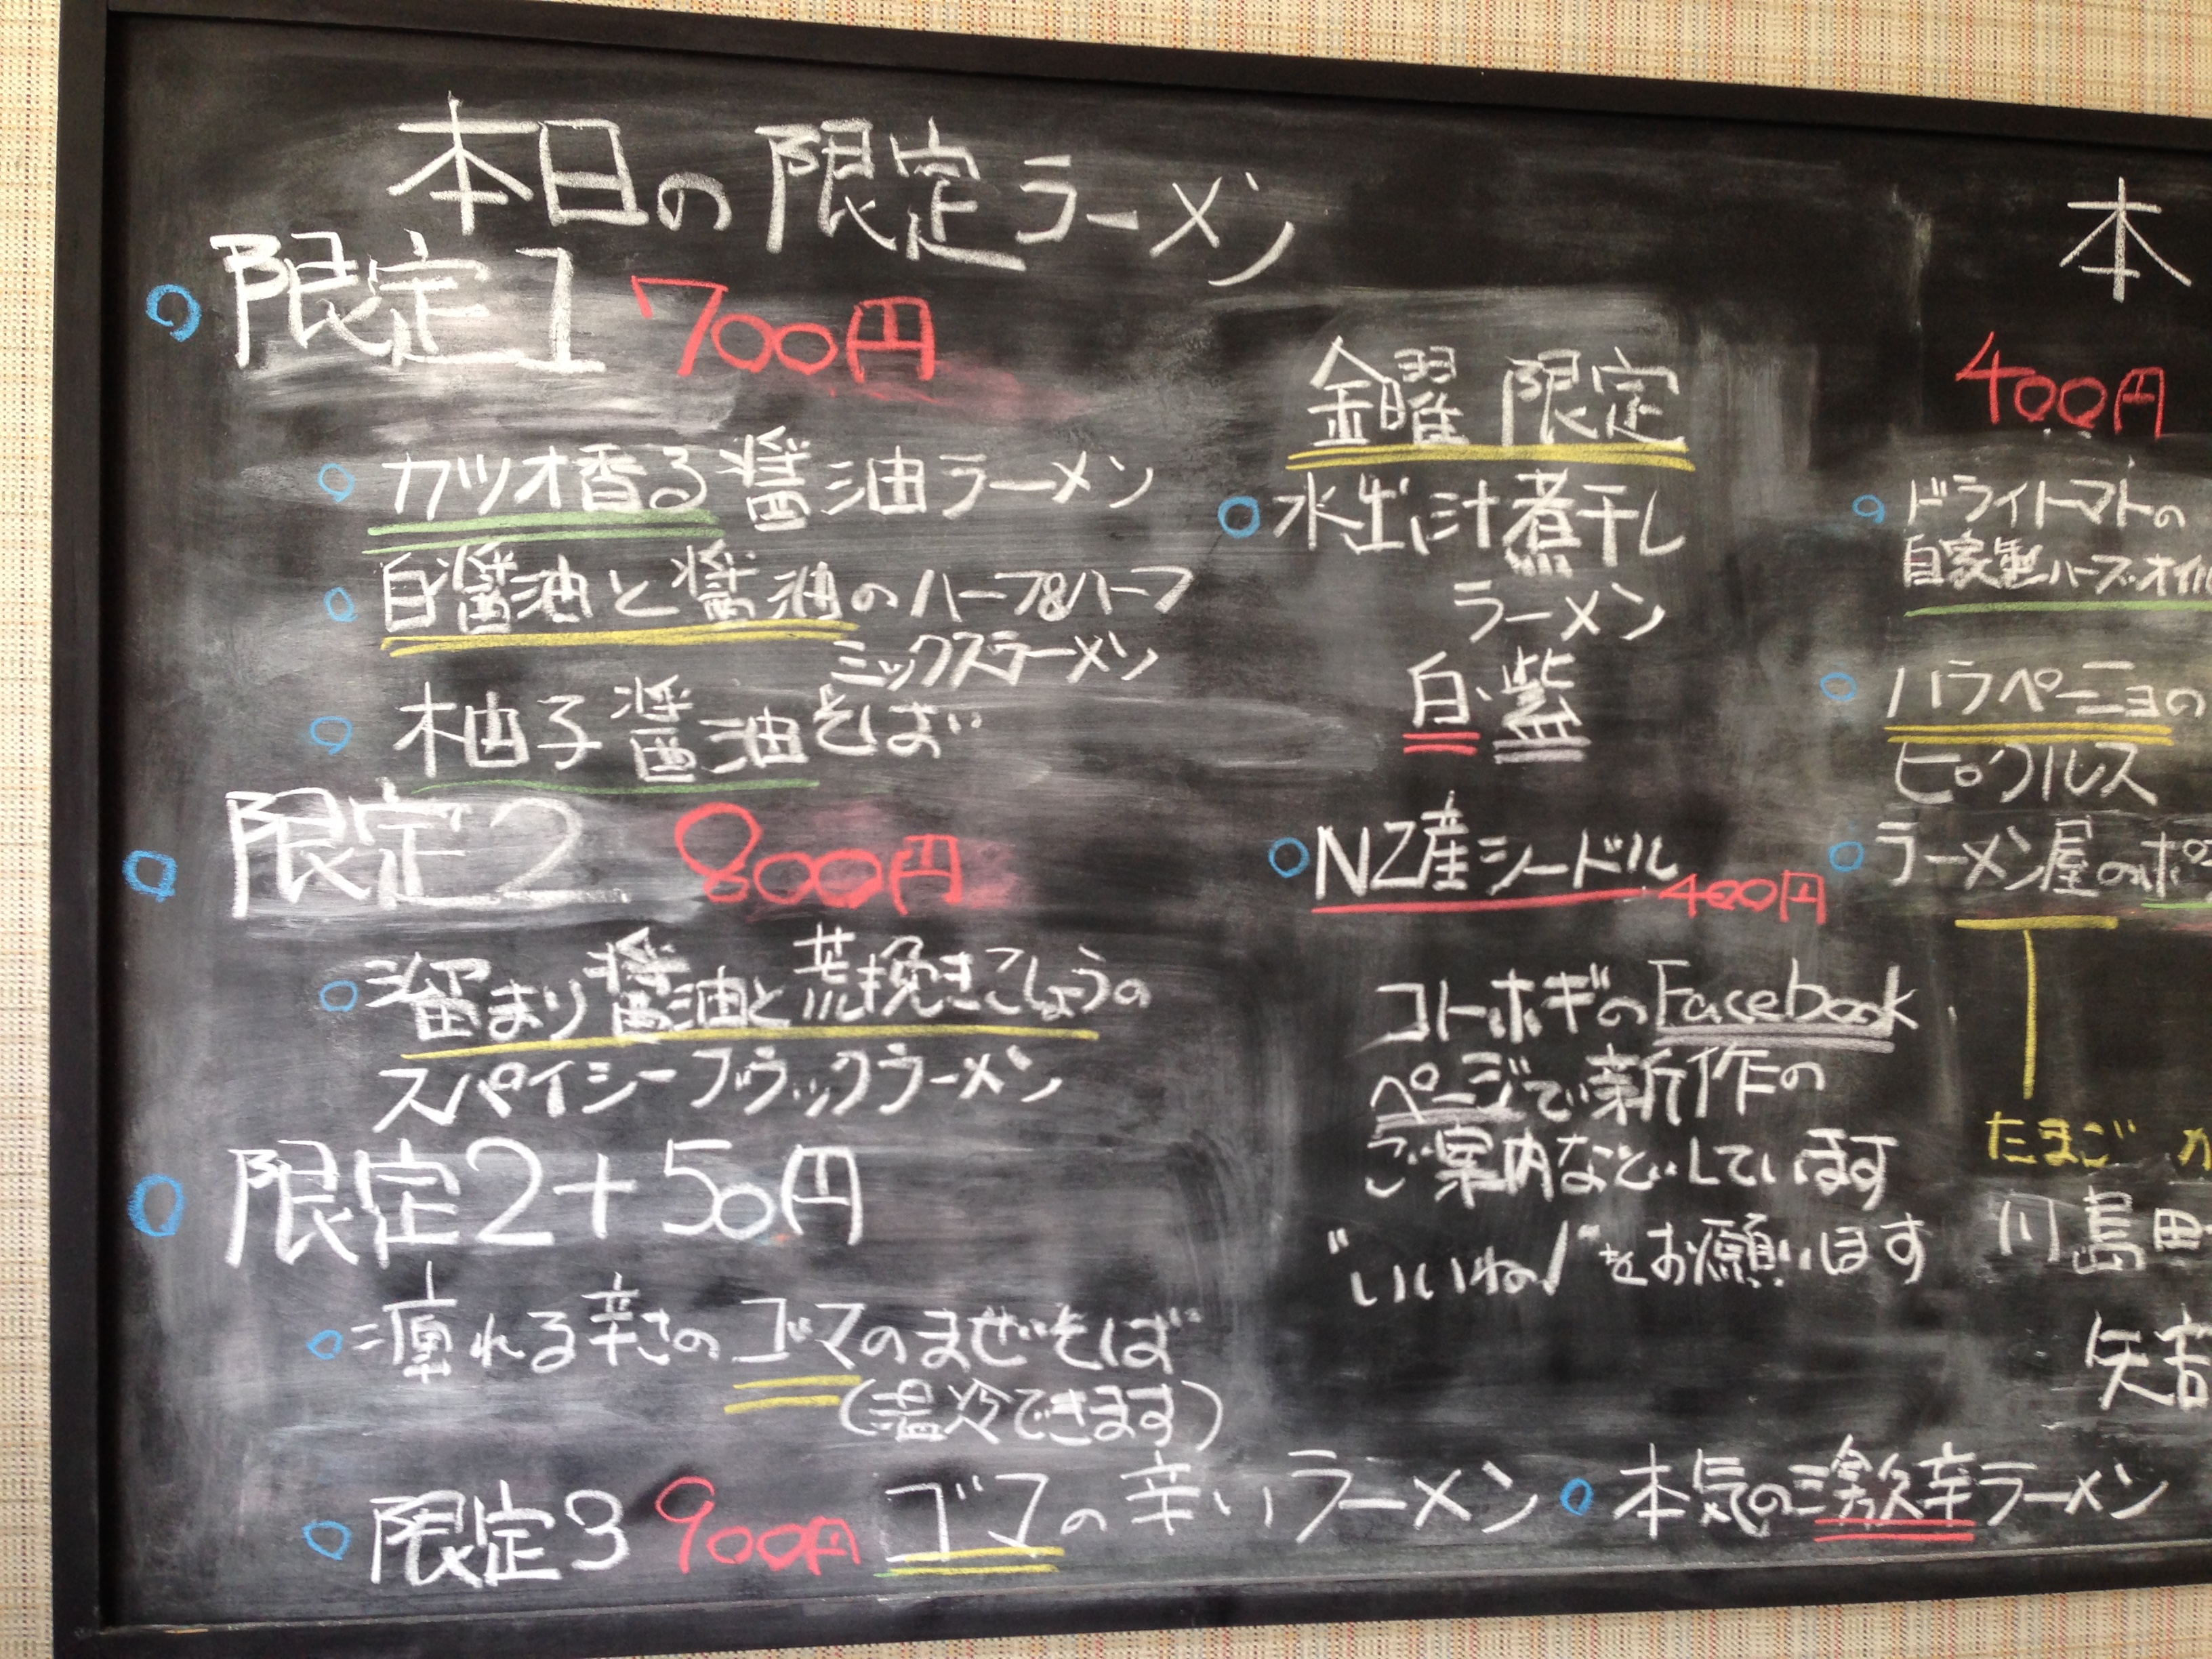 本日の限定ラーメン
限定1 700円
カツオ香る醤油ラーメン
白醤油と醤油のハーフ&ハーフ
ミックスラーメン
柚子醤油そば
限定2 800円
溜まり醤油と荒挽きこしょうの
スパイシーブラックラーメン
限定2+50円
痺れる辛さのゴマのまぜそば
(温冷できます)
限定3 900円 ゴマの辛いラーメン
本気の激辛ラーメン
金曜 限定
水出し汁煮干し
ラーメン
白・紫
NZ産シードル 400円
コトホギのFacebook
ページで新作の
ご案内などしています
"いいね!"をお願いします
本
400円
ドライトマトの
自家製ハーブオイル
ハラペーニョの
ピクルス
ラーメン屋のポ
たまご カ
川島田
矢